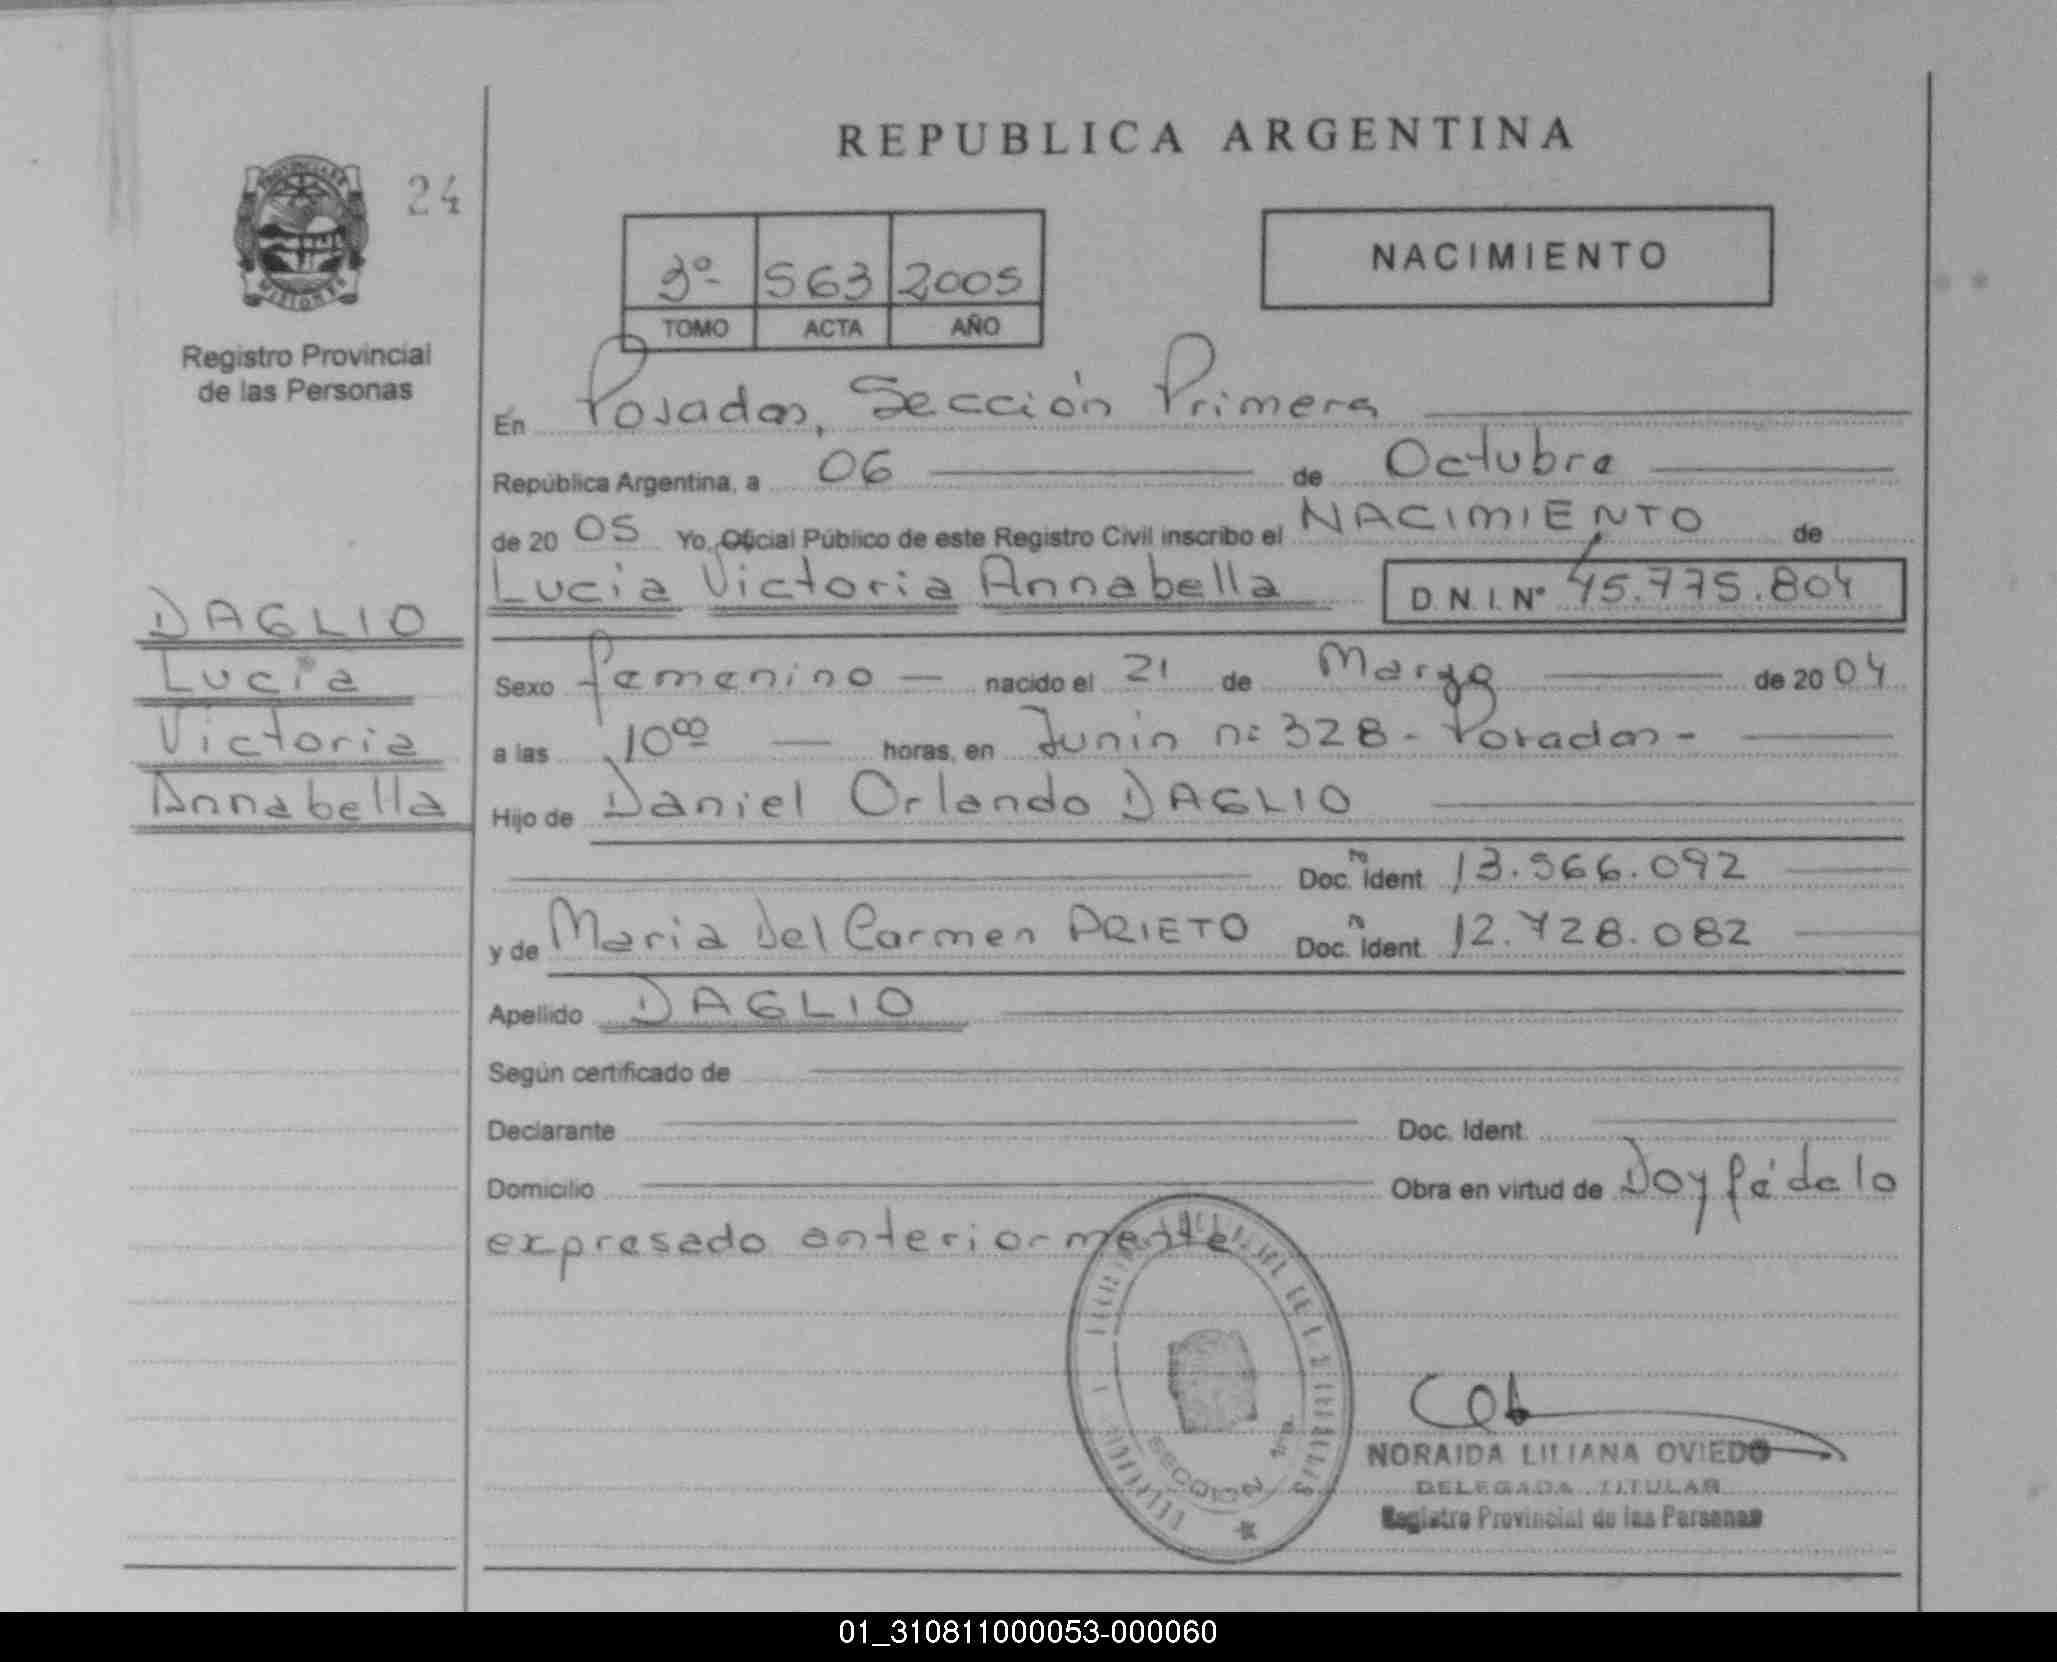 REPUBLICA ARGENTINA
24
3º 563 2005
TOMO ACTA AÑO
NACIMIENTO
MISIONES
Registro Provincial
de las Personas
En Posadas, Sección Primera
República Argentina, a 06 de Octubre
de 20 05 Yo, Oficial Público de este Registro Civil inscribo el NACIMIENTO de
Lucia Victoria Annabella D.N.I.Nº 45.775.804
DAGLIO
Lucia
Victoria
Annabella
Sexo femenino nacido el 21 de Marzo de 20 04
a las 10 00 horas, en Junin nº 328 - Posadas -
Hijo de Daniel Orlando DAGLIO
Doc. Ident. 13.566.092
y de Maria Del Carmen PRIETO Doc. Ident. 12.728.082
Apellido DAGLIO
Según certificado de
Declarante Doc. Ident.
Domicilio Obra en virtud de Doy fé de lo
expresado anteriormente.
SECCION 1ra.
NORAIDA LILIANA OVIEDO
DELEGADA TITULAR
Registro Provincial de las Personas
01_310811000053-000060